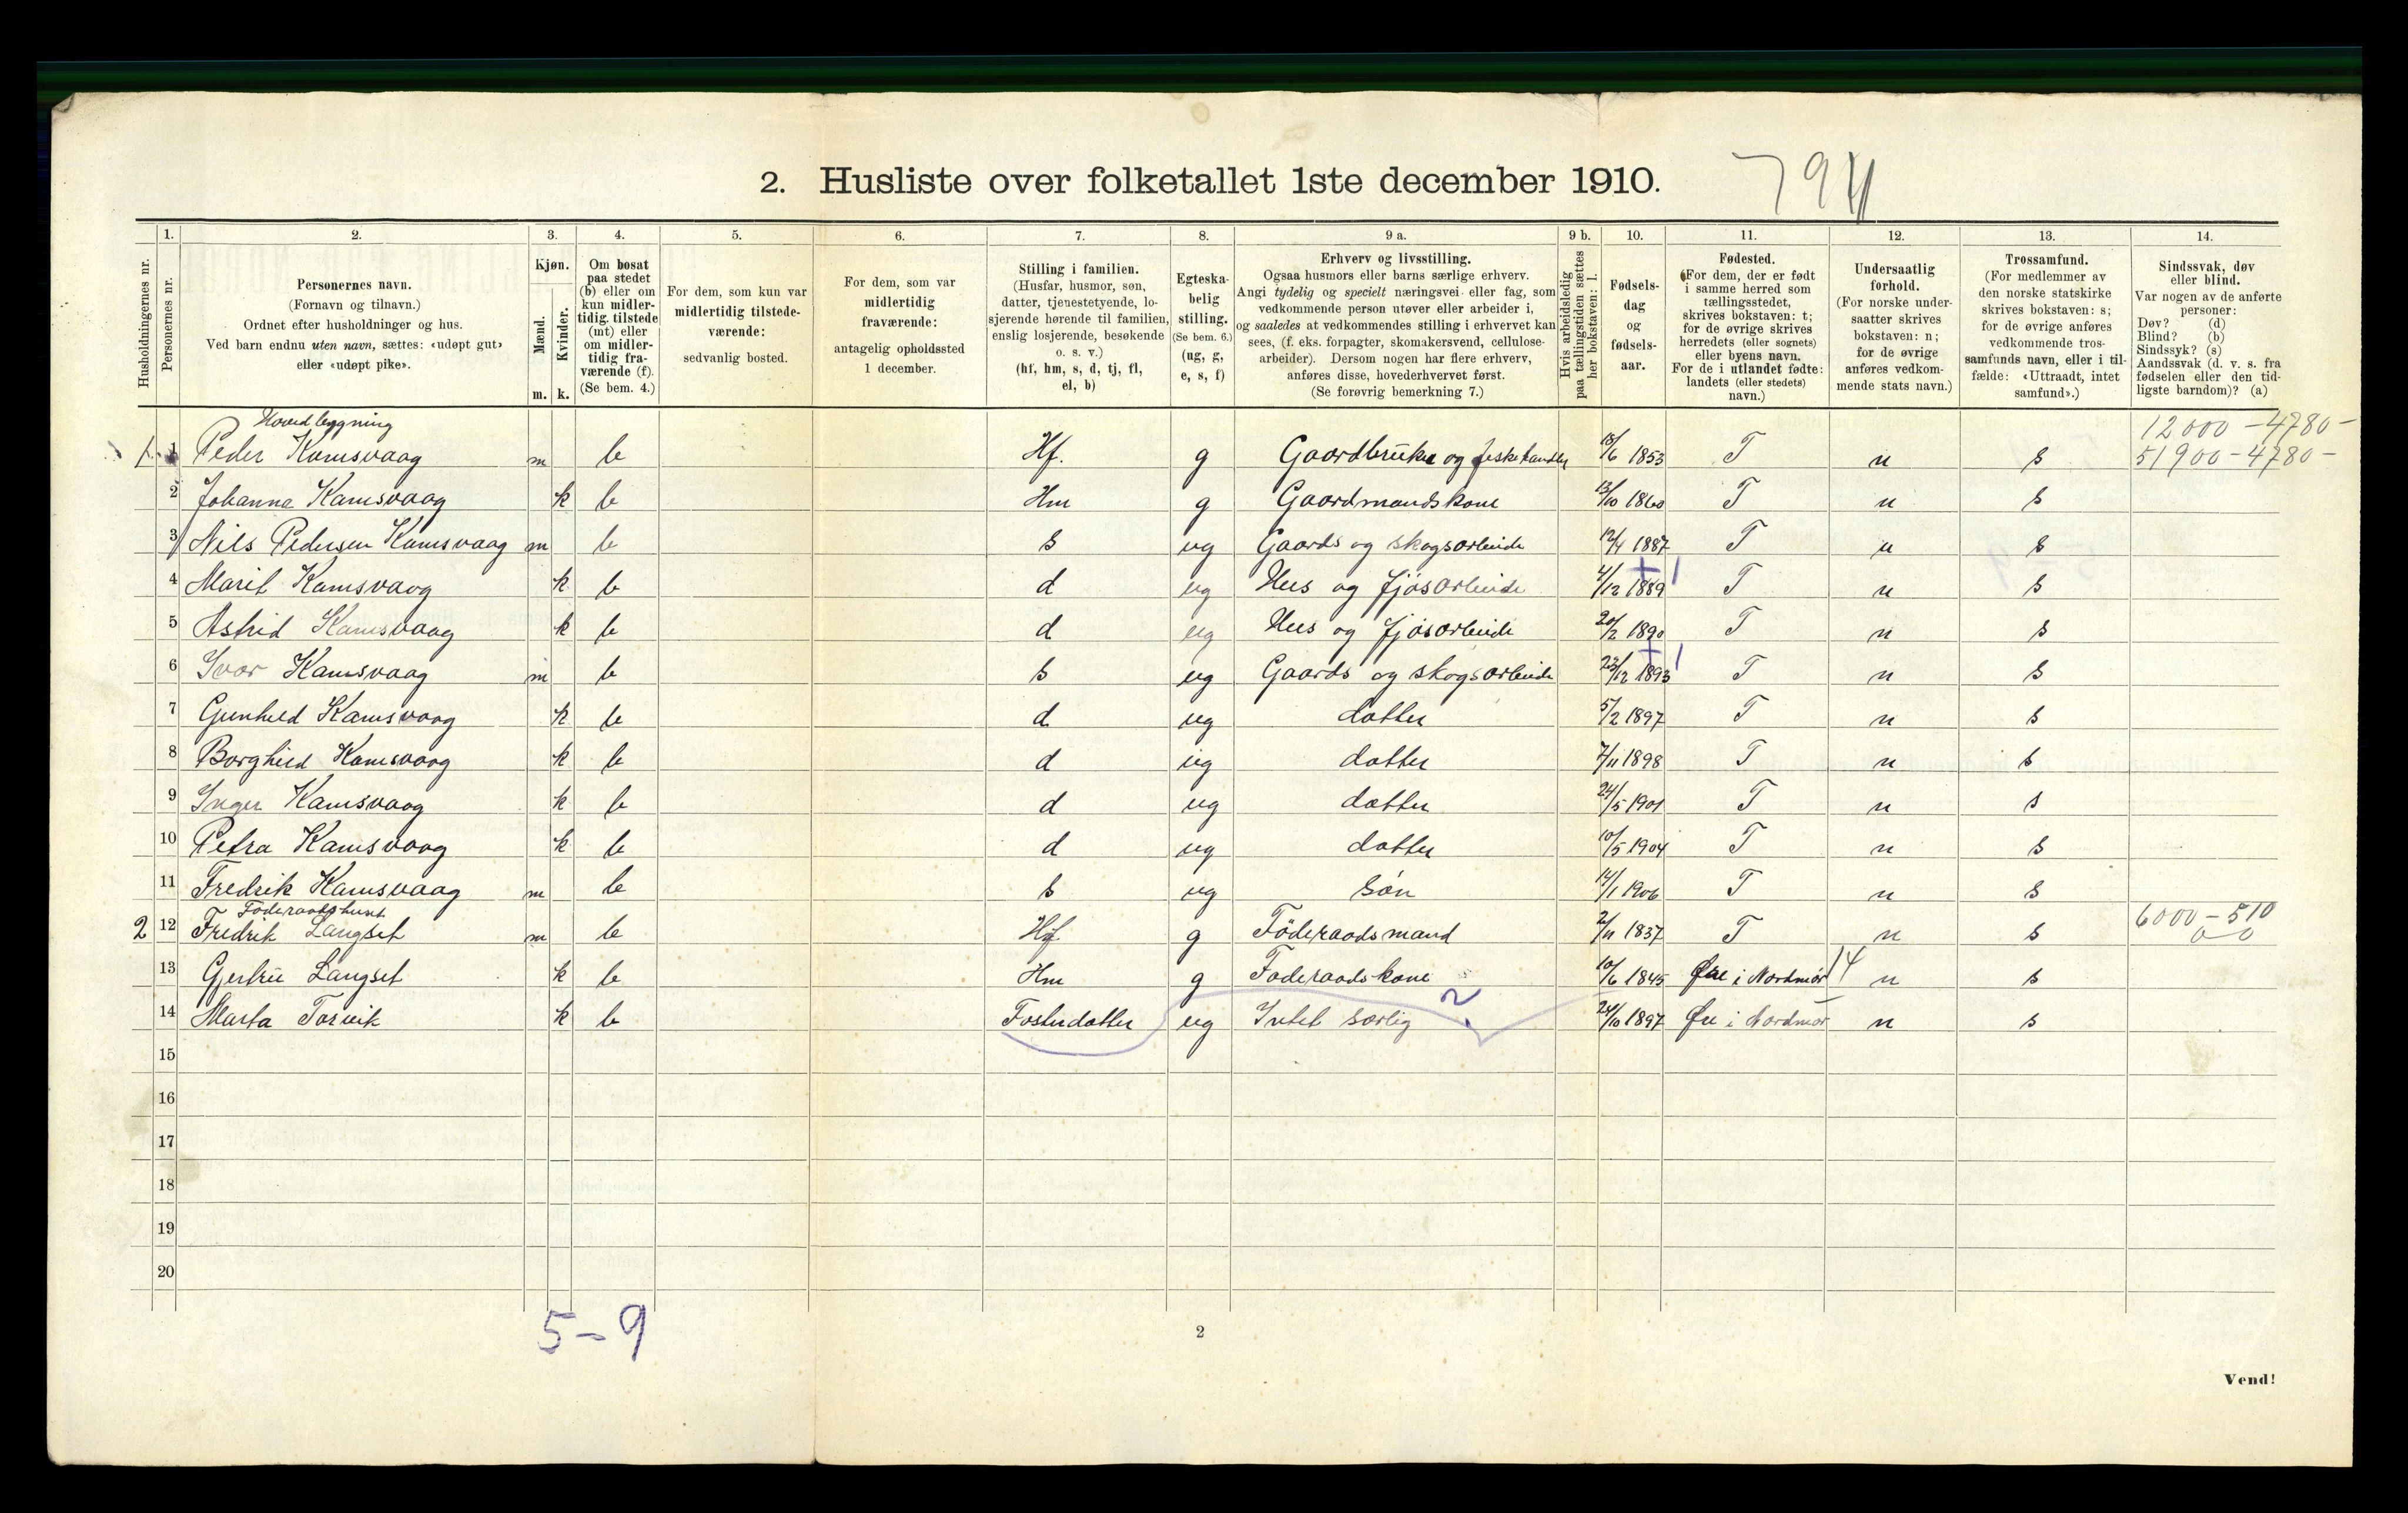 2. Husliste over folketallet 1ste december 1910.
794
Husholdningernes nr.
1. Personernes nr.
2. Personernes navn.
(Fornavn og tilnavn.)
Ordnet efter husholdninger og hus.
Ved barn endnu uten navn, sættes: «udøpt gut»
eller «udøpt pike».
3. Kjøn.
Mænd. Kvinder.
m. k.
4. Om bosat
paa stedet
(b) eller om
kun midler-
tidig tilstede
(mt) eller
om midler-
tidig fra-
værende (f).
(Se bem. 4.)
5. For dem, som kun var
midlertidig tilstede-
værende:
sedvanlig bosted.
6. For dem, som var
midlertidig
fraværende:
antagelig opholdssted
1 december.
7. Stilling i familien.
(Husfar, husmor, søn,
datter, tjenestetyende, lo-
sjerende hørende til familien,
enslig losjerende, besøkende
o. s. v.)
(hf, hm, s, d, tj, fl,
el, b)
8. Egteska-
belig
stilling.
(Se bem. 6.)
(ug, g,
e, s, f)
9 a. Erhverv og livsstilling.
Ogsaa husmors eller barns særlige erhverv.
Angi tydelig og specielt næringsvei eller fag, som
vedkommende person utøver eller arbeider i,
og saaledes at vedkommendes stilling i erhvervet kan
sees, (f. eks. forpagter, skomakersvend, cellulose-
arbeider). Dersom nogen har flere erhverv,
anføres disse, hovederhvervet først.
(Se forøvrig bemerkning 7.)
9 b. Hvis arbeidsledig
paa tællingstiden sættes
her bokstaven: l.
10. Fødsels-
dag
og
fødsels-
aar.
11. Fødested.
(For dem, der er født
i samme herred som
tællingsstedet,
skrives bokstaven: t;
for de øvrige skrives
herredets (eller sognets)
eller byens navn.
For de i utlandet fødte:
landets (eller stedets)
navn.)
12. Undersaatlig
forhold.
(For norske under-
saatter skrives
bokstaven: n;
for de øvrige
anføres vedkom-
mende stats navn.)
13. Trossamfund.
(For medlemmer av
den norske statskirke
skrives bokstaven: s;
for de øvrige anføres
vedkommende tros-
samfunds navn, eller i til-
fælde: «Uttraadt, intet
samfund».)
14. Sindssvak, døv
eller blind.
Var nogen av de anførte
personer:
Døv? (d)
Blind? (b)
Sindssyk? (s)
Aandssvak (d. v. s. fra
fødselen eller den tid-
ligste barndom)? (a)
Hovedbygning 12000 - 4780 -
1. 1 Peder Kamsvaag m b Hf. g Gaardbruker og feskehandler 18/6 1853 T n s 51900 - 4780 -
2 Johanna Kamsvaag k b Hm g Gaardmandskone 13/10 1860 T n s
3 Nils Pedersen Kamsvaag m b s ug Gaards og skogsarbeide 12/4 1887 T n s
4 Marit Kamsvaag k b d ug Hus og fjøsarbeide 4/12 1889 T n s
5 Astrid Kamsvaag k b d ug Hus og fjøsarbeide 20/2 1890 T n s
6 Ivar Kamsvaag m b s ug Gaards og skogsarbeide 23/12 1893 T n s
7 Gunhild Kamsvaag k b d ug datter 5/2 1897 T n s
8 Borghild Kamsvaag k b d ug datter 7/11 1898 T n s
9 Inger Kamsvaag k b d ug datter 24/5 1901 T n s
10 Petra Kamsvaag k b d ug datter 10/5 1904 T n s
11 Fredrik Kamsvaag m b s ug søn 14/1 1906 T n s
Føderaadshuset
2 12 Fredrik Langset m b Hf g Føderaadsmand 2/11 1837 T n s 6000 - 510
0 0
13 Gjertru Langset k b Hm g Føderaadskone 10/6 1845 Øre i Nordmør 14 n s
14 Marta Torvik k b Fosterdatter ug Intet særlig 2 24/10 1897 Øre i Nordmør n s
15
16
17
18
19
20
5 - 9
2
Vend!